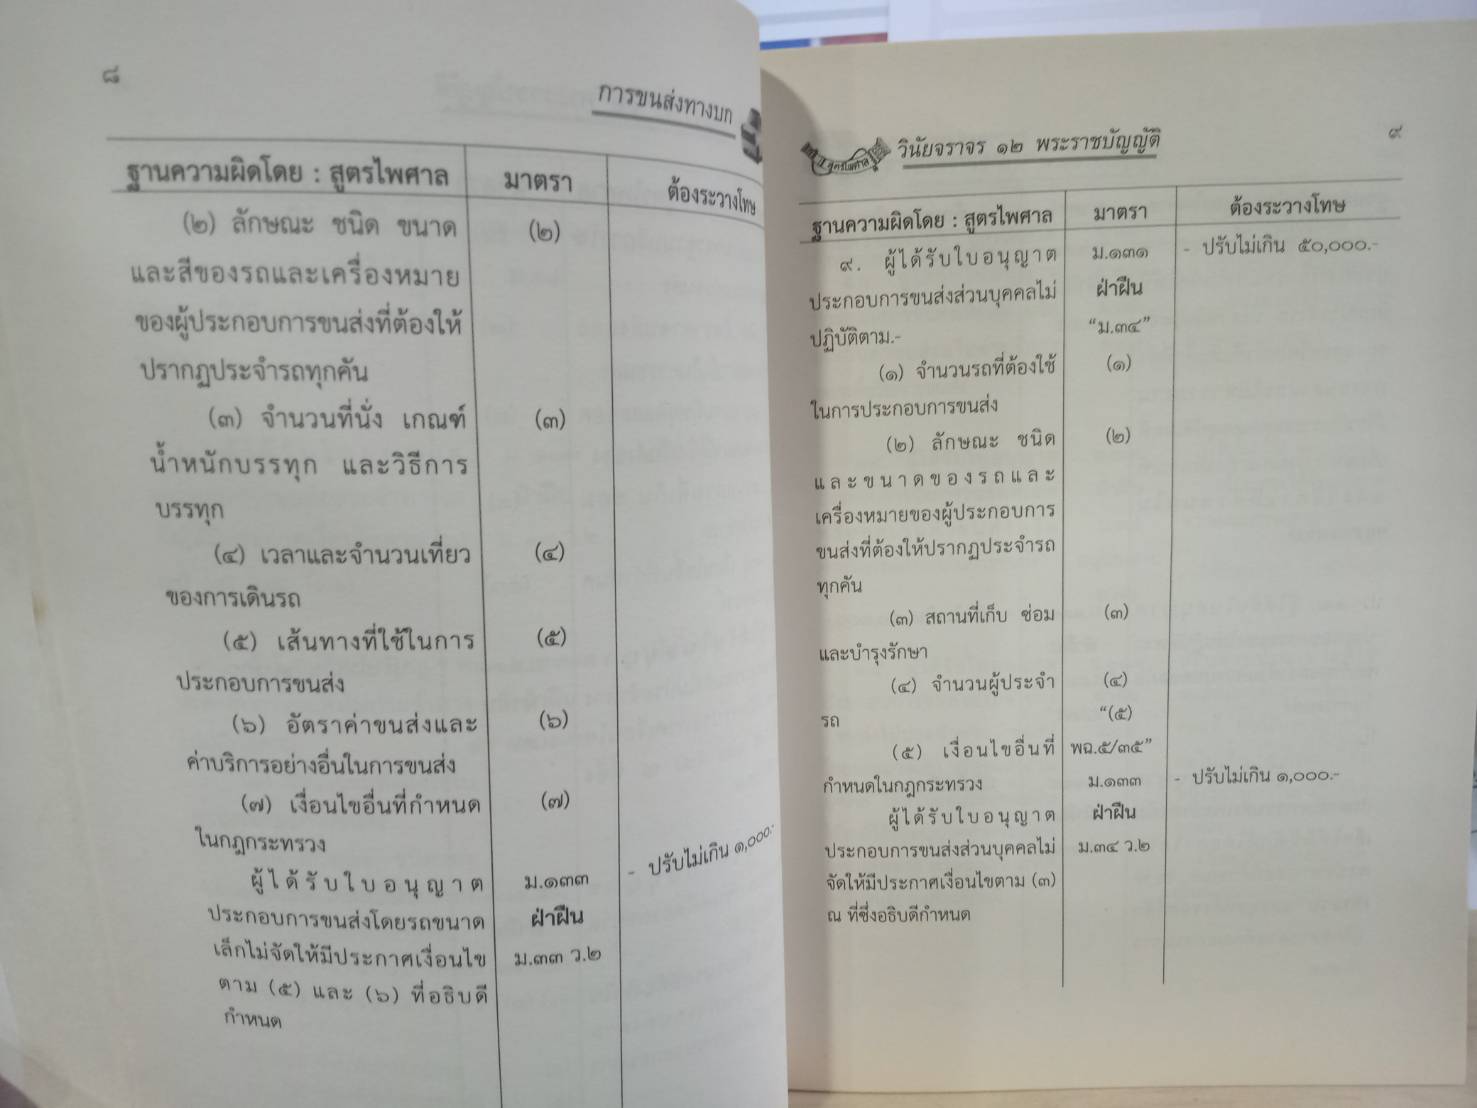 ๘
การขนส่งทางบก
ฐานความผิดโดย : สูตรไพศาล มาตรา ต้องระวางโทษ
(๒) ลักษณะ ชนิด ขนาด (๒)
และสีของรถและเครื่องหมาย
ของผู้ประกอบการขนส่งที่ต้องให้
ปรากฏประจำรถทุกคัน
(๓) จำนวนที่นั่ง เกณฑ์ (๓)
น้ำหนักบรรทุก และวิธีการ
บรรทุก
(๔) เวลาและจำนวนเที่ยว (๔)
ของการเดินรถ
(๕) เส้นทางที่ใช้ในการ (๕)
ประกอบการขนส่ง
(๖) อัตราค่าขนส่งและ (๖)
ค่าบริการอย่างอื่นในการขนส่ง
(๗) เงื่อนไขอื่นที่กำหนด (๗)
ในกฎกระทรวง
ผู้ได้รับใบอนุญาต ม.๑๓๓ - ปรับไม่เกิน ๑,๐๐๐.-
ประกอบการขนส่งโดยรถขนาด ฝ่าฝืน
เล็กไม่จัดให้มีประกาศเงื่อนไข ม.๓๓ ว.๒
ตาม (๕) และ (๖) ที่อธิบดี
กำหนด
สูตรไพศาล วินัยจราจร ๑๒ พระราชบัญญัติ ๙
ฐานความผิดโดย : สูตรไพศาล มาตรา ต้องระวางโทษ
๙. ผู้ได้รับใบอนุญาต ม.๑๓๑ - ปรับไม่เกิน ๕๐,๐๐๐.-
ประกอบการขนส่งส่วนบุคคลไม่ ฝ่าฝืน
ปฏิบัติตาม.- "ม.๓๔"
(๑) จำนวนรถที่ต้องใช้ (๑)
ในการประกอบการขนส่ง
(๒) ลักษณะ ชนิด (๒)
และขนาดของรถและ
เครื่องหมายของผู้ประกอบการ
ขนส่งที่ต้องให้ปรากฏประจำรถ
ทุกคัน
(๓) สถานที่เก็บ ซ่อม (๓)
และบำรุงรักษา
(๔) จำนวนผู้ประจำ (๔)
รถ "(๕)
(๕) เงื่อนไขอื่นที่ พฉ.๕/๓๕"
กำหนดในกฎกระทรวง ม.๑๓๓ - ปรับไม่เกิน ๑,๐๐๐.-
ผู้ได้รับใบอนุญาต ฝ่าฝืน
ประกอบการขนส่งส่วนบุคคลไม่ ม.๓๔ ว.๒
จัดให้มีประกาศเงื่อนไขตาม (๓)
ณ ที่ซึ่งอธิบดีกำหนด